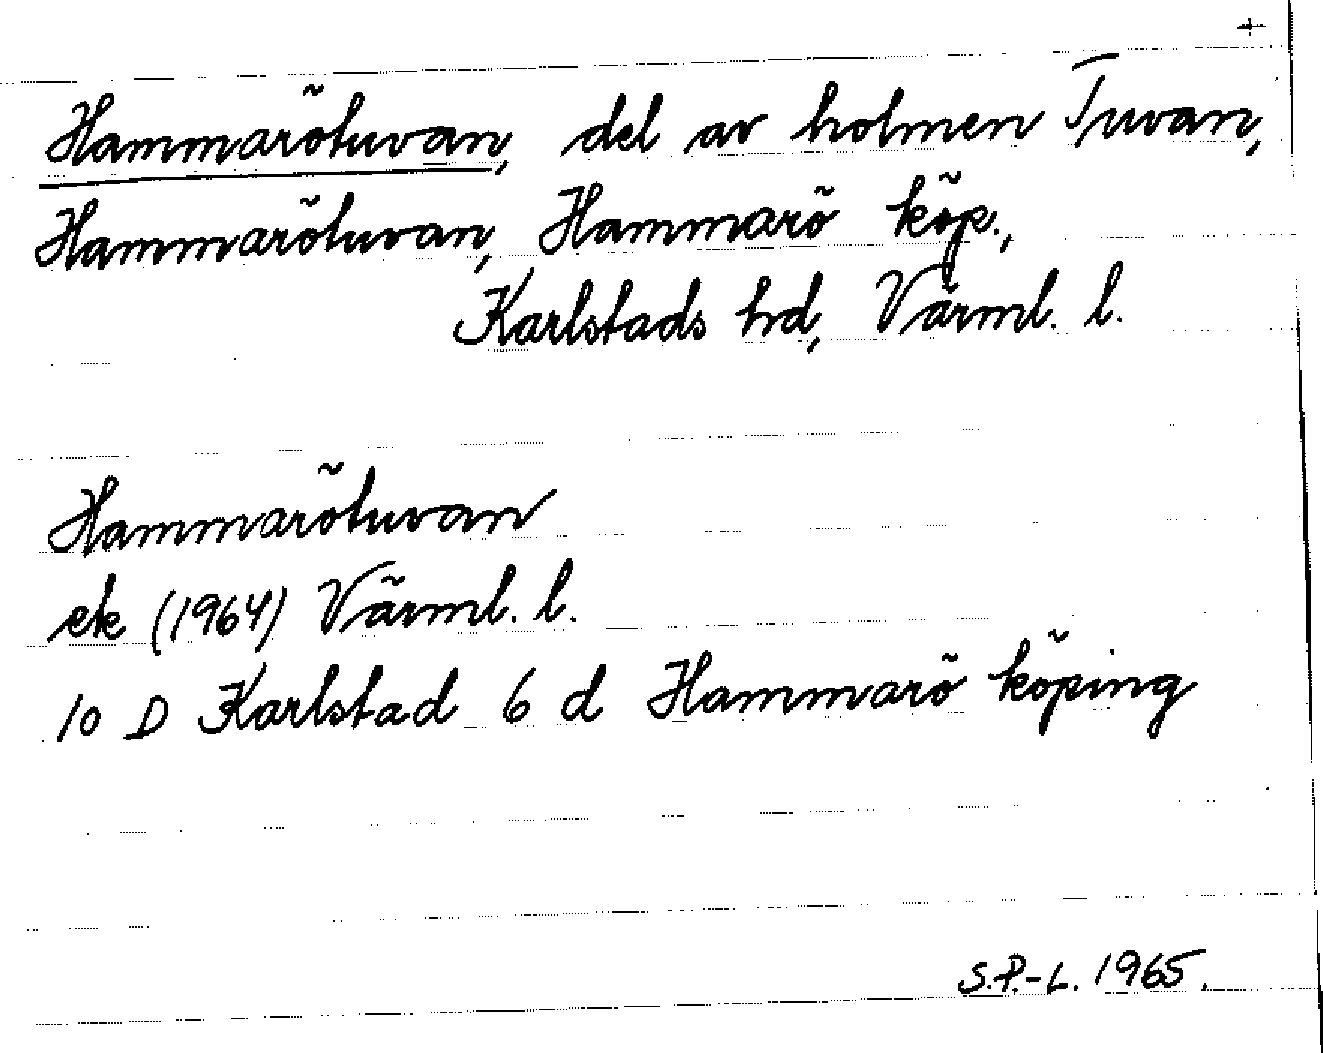 +
Hammarötuvan, del av holmen Tuvan,
Hammarötuvan, Hammarö köp.,
Karlstads hd, Värml. l.
Hammarötuvan
ek (1964) Värml. l.
10 D Karlstad 6 d Hammarö köping
S.P.-L. 1965.